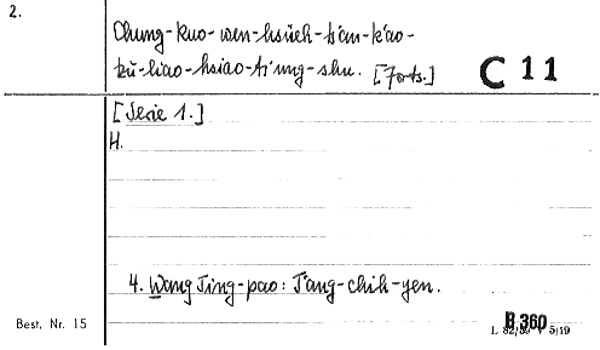 2.
Chung-kuo-wen-hsüeh-ts'an-k'ao-
tzŭ-liao-hsiao-ts'ung-shu. [Forts.]
C 11
[Serie 1.]
H.
4. Wang Ting-pao: T'ang-chih-yen.
Best. Nr. 15
B 360
5/19